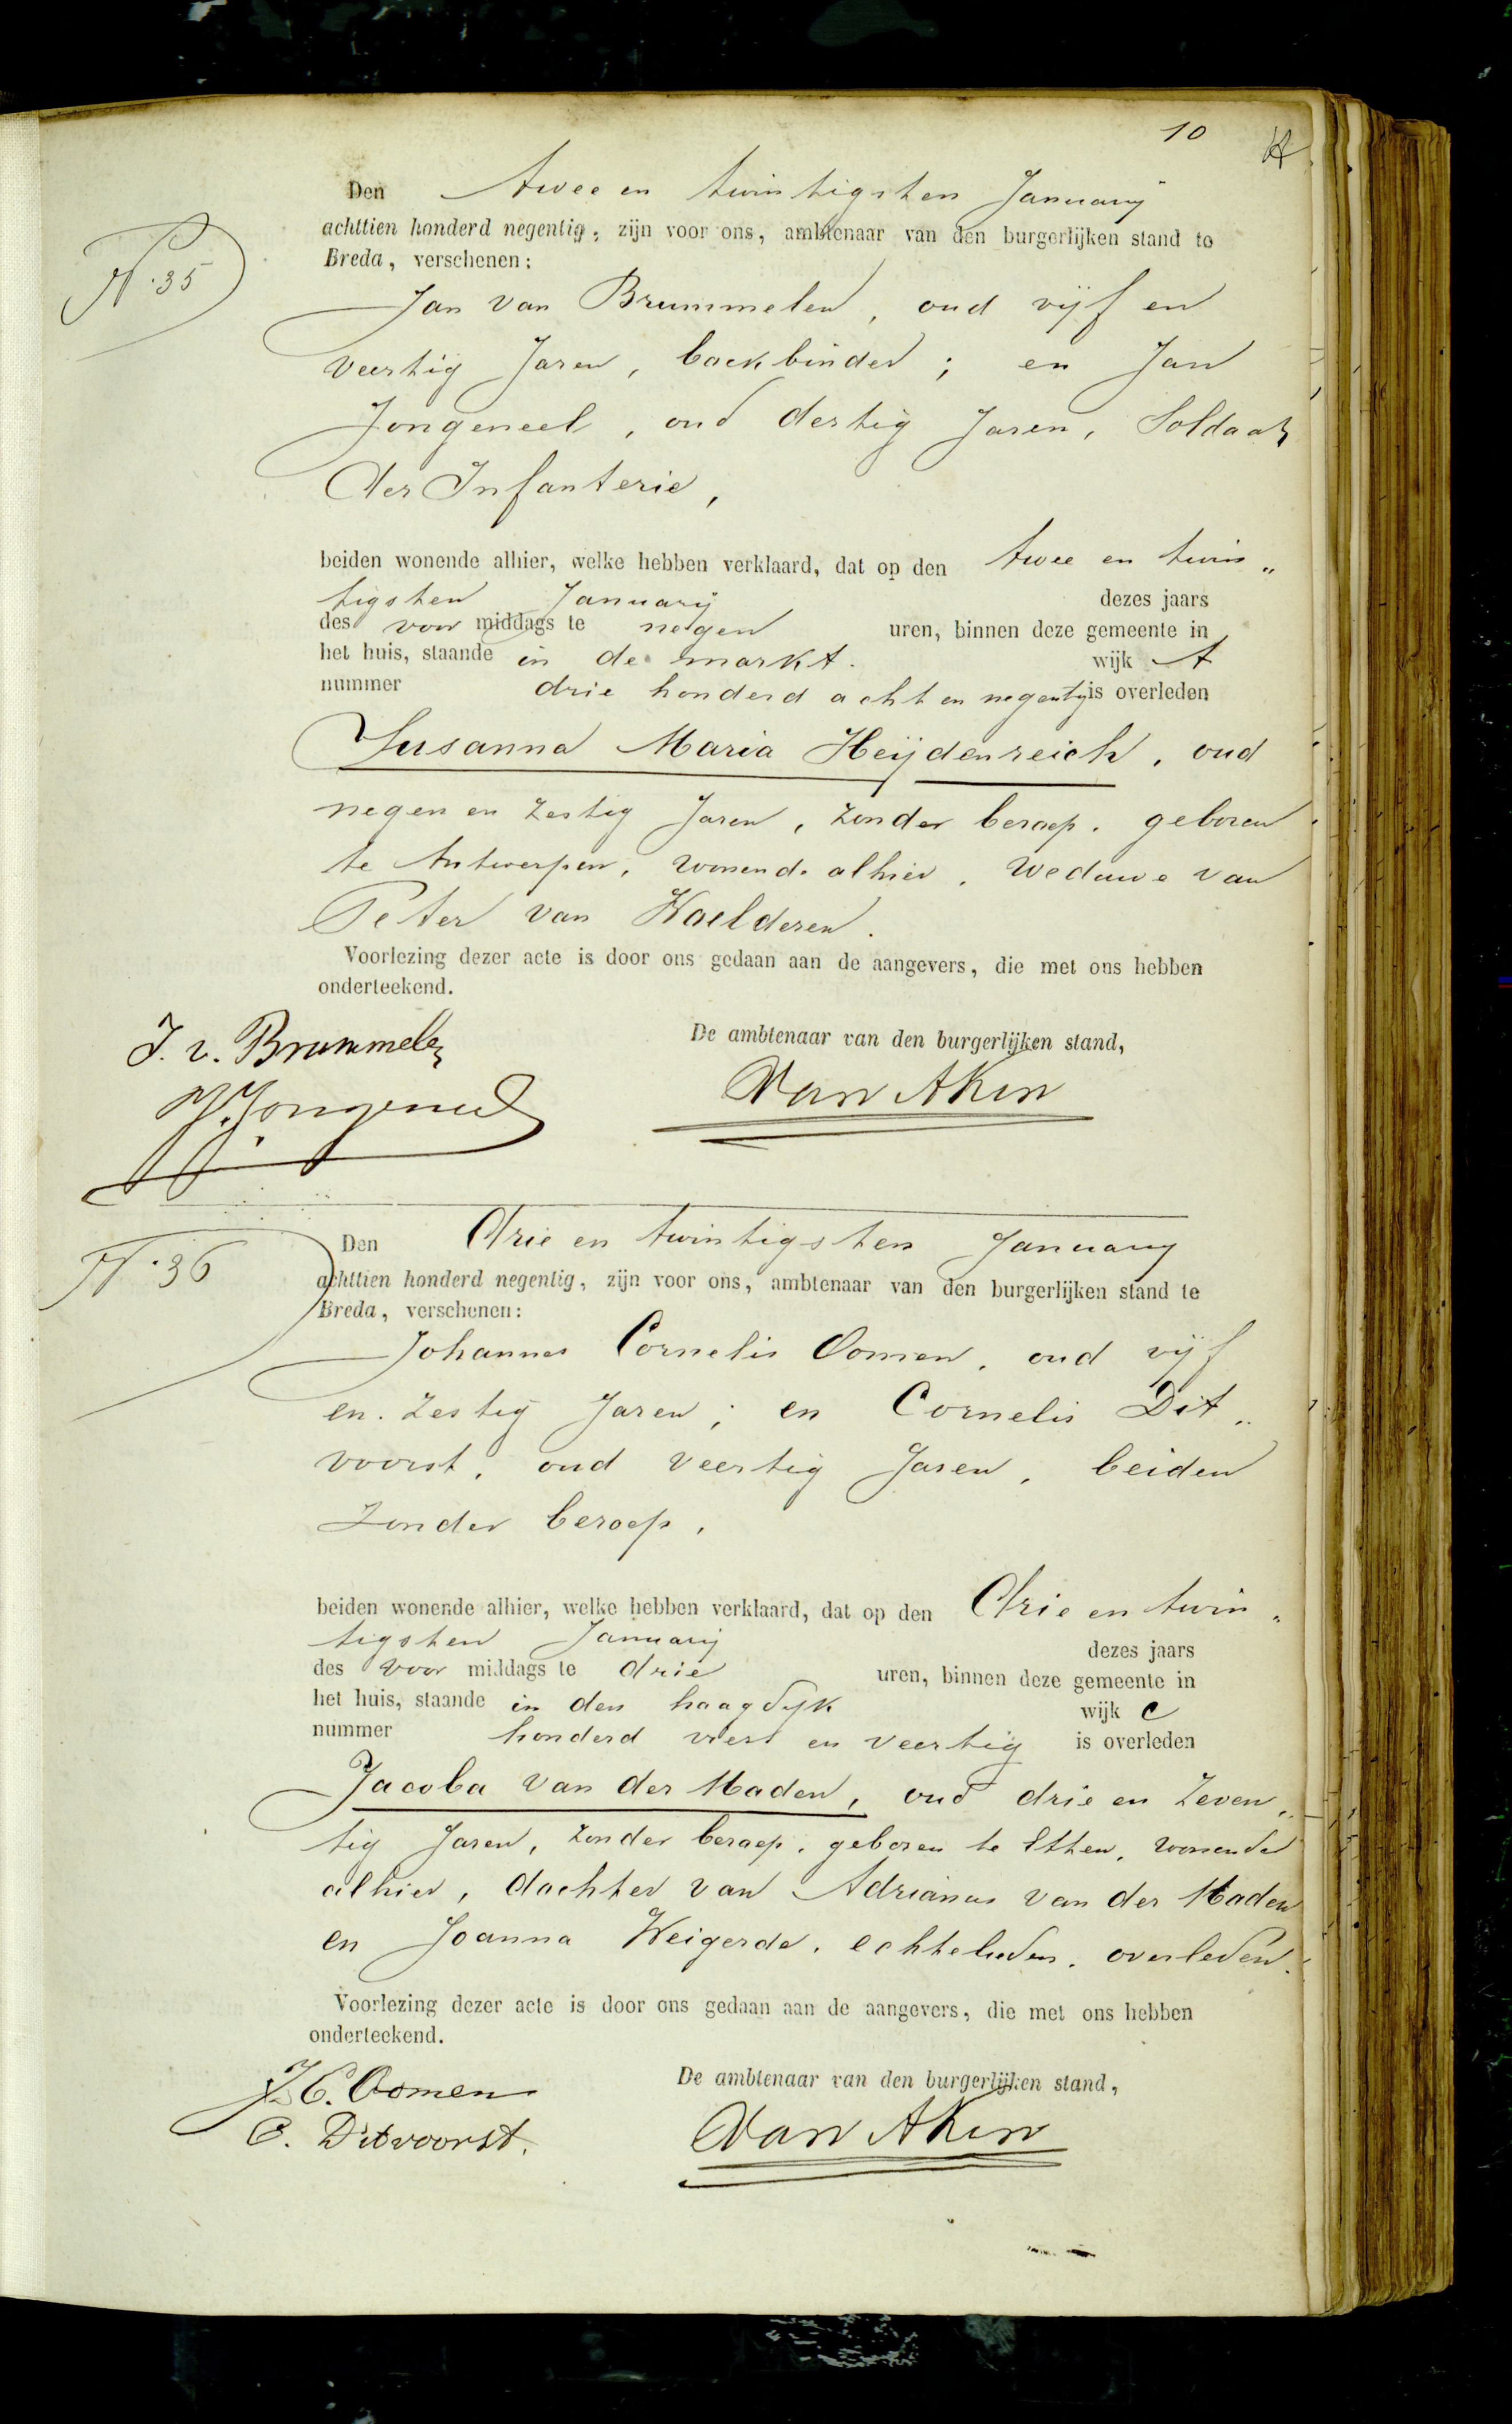 10
Den twee en twintigsten Januarij
N.35
achttien honderd negentig, zijn voor ons, ambtenaar van den burgerlijken stand te
Breda, verschenen:
Jan van Brummelen, oud vijf en
veertig Jaren, boekbinder; en Jan
Jongeneel, oud dertig Jaren, Soldaat
der Infanterie,
beiden wonende alhier, welke hebben verklaard, dat op den twee en twin„
tigsten Januarij dezes jaars
des voor middags te negen uren, binnen deze gemeente in
het huis, staande in de markt. wijk A
nummer drie honderd acht en negentig is overleden
Susanna Maria Heijdenreich, oud
negen en zestig Jaren, zonder beroep, geboren
te Antwerpen, wonende alhier, Weduwe van
Peter van Haelderen.
Voorlezing dezer acte is door ons gedaan aan de aangevers, die met ons hebben
onderteekend.
De ambtenaar van den burgerlijken stand,
J. v. Brummelen
J. Jongeneel
Van Aken
N.36
Den drie en twintigsten Januarij
achttien honderd negentig, zijn voor ons, ambtenaar van den burgerlijken stand te
Breda, verschenen:
Johannes Cornelis Oomen, oud vijf
en zestig Jaren; en Cornelis Dit„
voorst, oud veertig Jaren, beiden
zonder beroep,
beiden wonende alhier, welke hebben verklaard, dat op den drie en twin„
tigsten Januarij dezes jaars
des voor middags te drie uren, binnen deze gemeente in
het huis, staande in den haagdijk wijk C
nummer honderd vier en veertig is overleden
Jacoba van der Maden, oud drie en zeven„
tig Jaren, zonder beroep, geboren te Etten, wonende
alhier, dochter van Adrianus van der Maden
en Joanna Weigerde, echtelieden, overleden.
Voorlezing dezer acte is door ons gedaan aan de aangevers, die met ons hebben
onderteekend.
De ambtenaar van den burgerlijken stand,
J. C. Oomen
C. Ditvoorst.
Van Aken